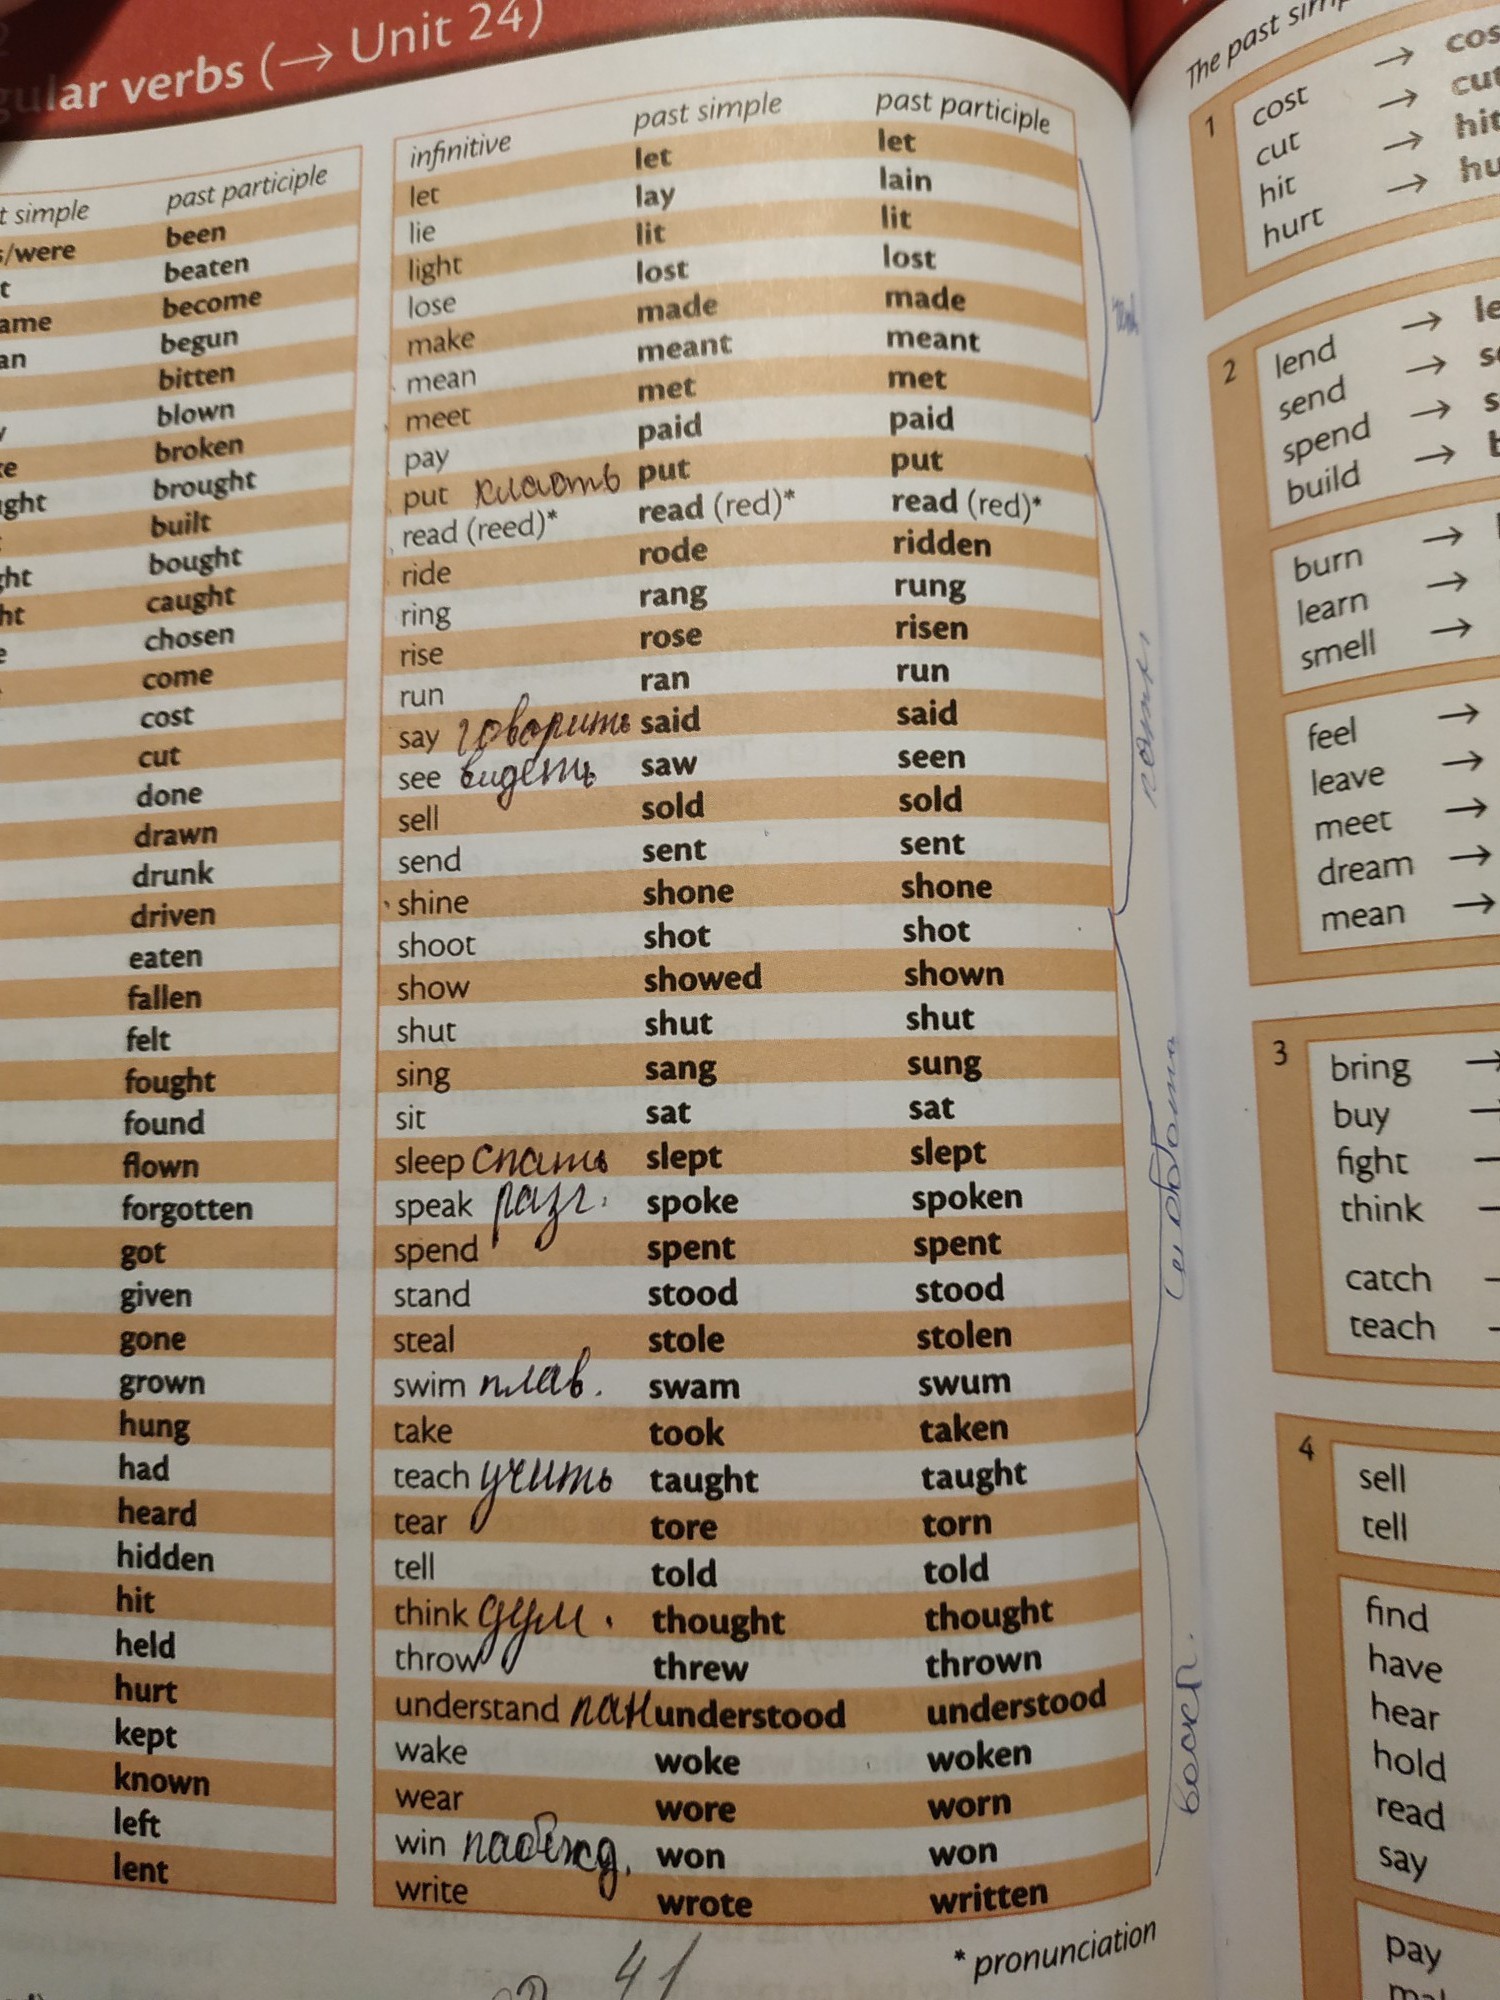 gular verbs (→ Unit 24)
t simple past participle
s/were been
t beaten
ame become
an begun
bitten
y blown
ke broken
ght brought
t built
ght bought
ht caught
e chosen
come
cost
cut
done
drawn
drunk
driven
eaten
fallen
felt
fought
found
flown
forgotten
got
given
gone
grown
hung
had
heard
hidden
hit
held
hurt
kept
known
left
lent
infinitive past simple past participle
let let let
lie lay lain
light lit lit
lose lost lost
make made made
mean meant meant
meet met met
pay paid paid
put класть put put
read (reed)* read (red)* read (red)*
ride rode ridden
ring rang rung
rise rose risen
run ran run
say говорить said said
see видеть saw seen
sell sold sold
send sent sent
shine shone shone
shoot shot shot
show showed shown
shut shut shut
sing sang sung
sit sat sat
sleep спать slept slept
speak разг. spoke spoken
spend spent spent
stand stood stood
steal stole stolen
swim плав. swam swum
take took taken
teach учить taught taught
tear tore torn
tell told told
think дум. thought thought
throw threw thrown
understand пан understood understood
wake woke woken
wear wore worn
win пабежд. won won
write wrote written
* pronunciation
41
пятн.
суббота
воск.
The past simp
1 cost → cos
cut → cut
hit → hit
hurt → hu
2 lend → le
send → se
spend → s
build → b
burn →
learn →
smell →
feel →
leave →
meet →
dream →
mean →
3 bring →
buy
fight
think
catch
teach
4 sell
tell
find
have
hear
hold
read
say
pay